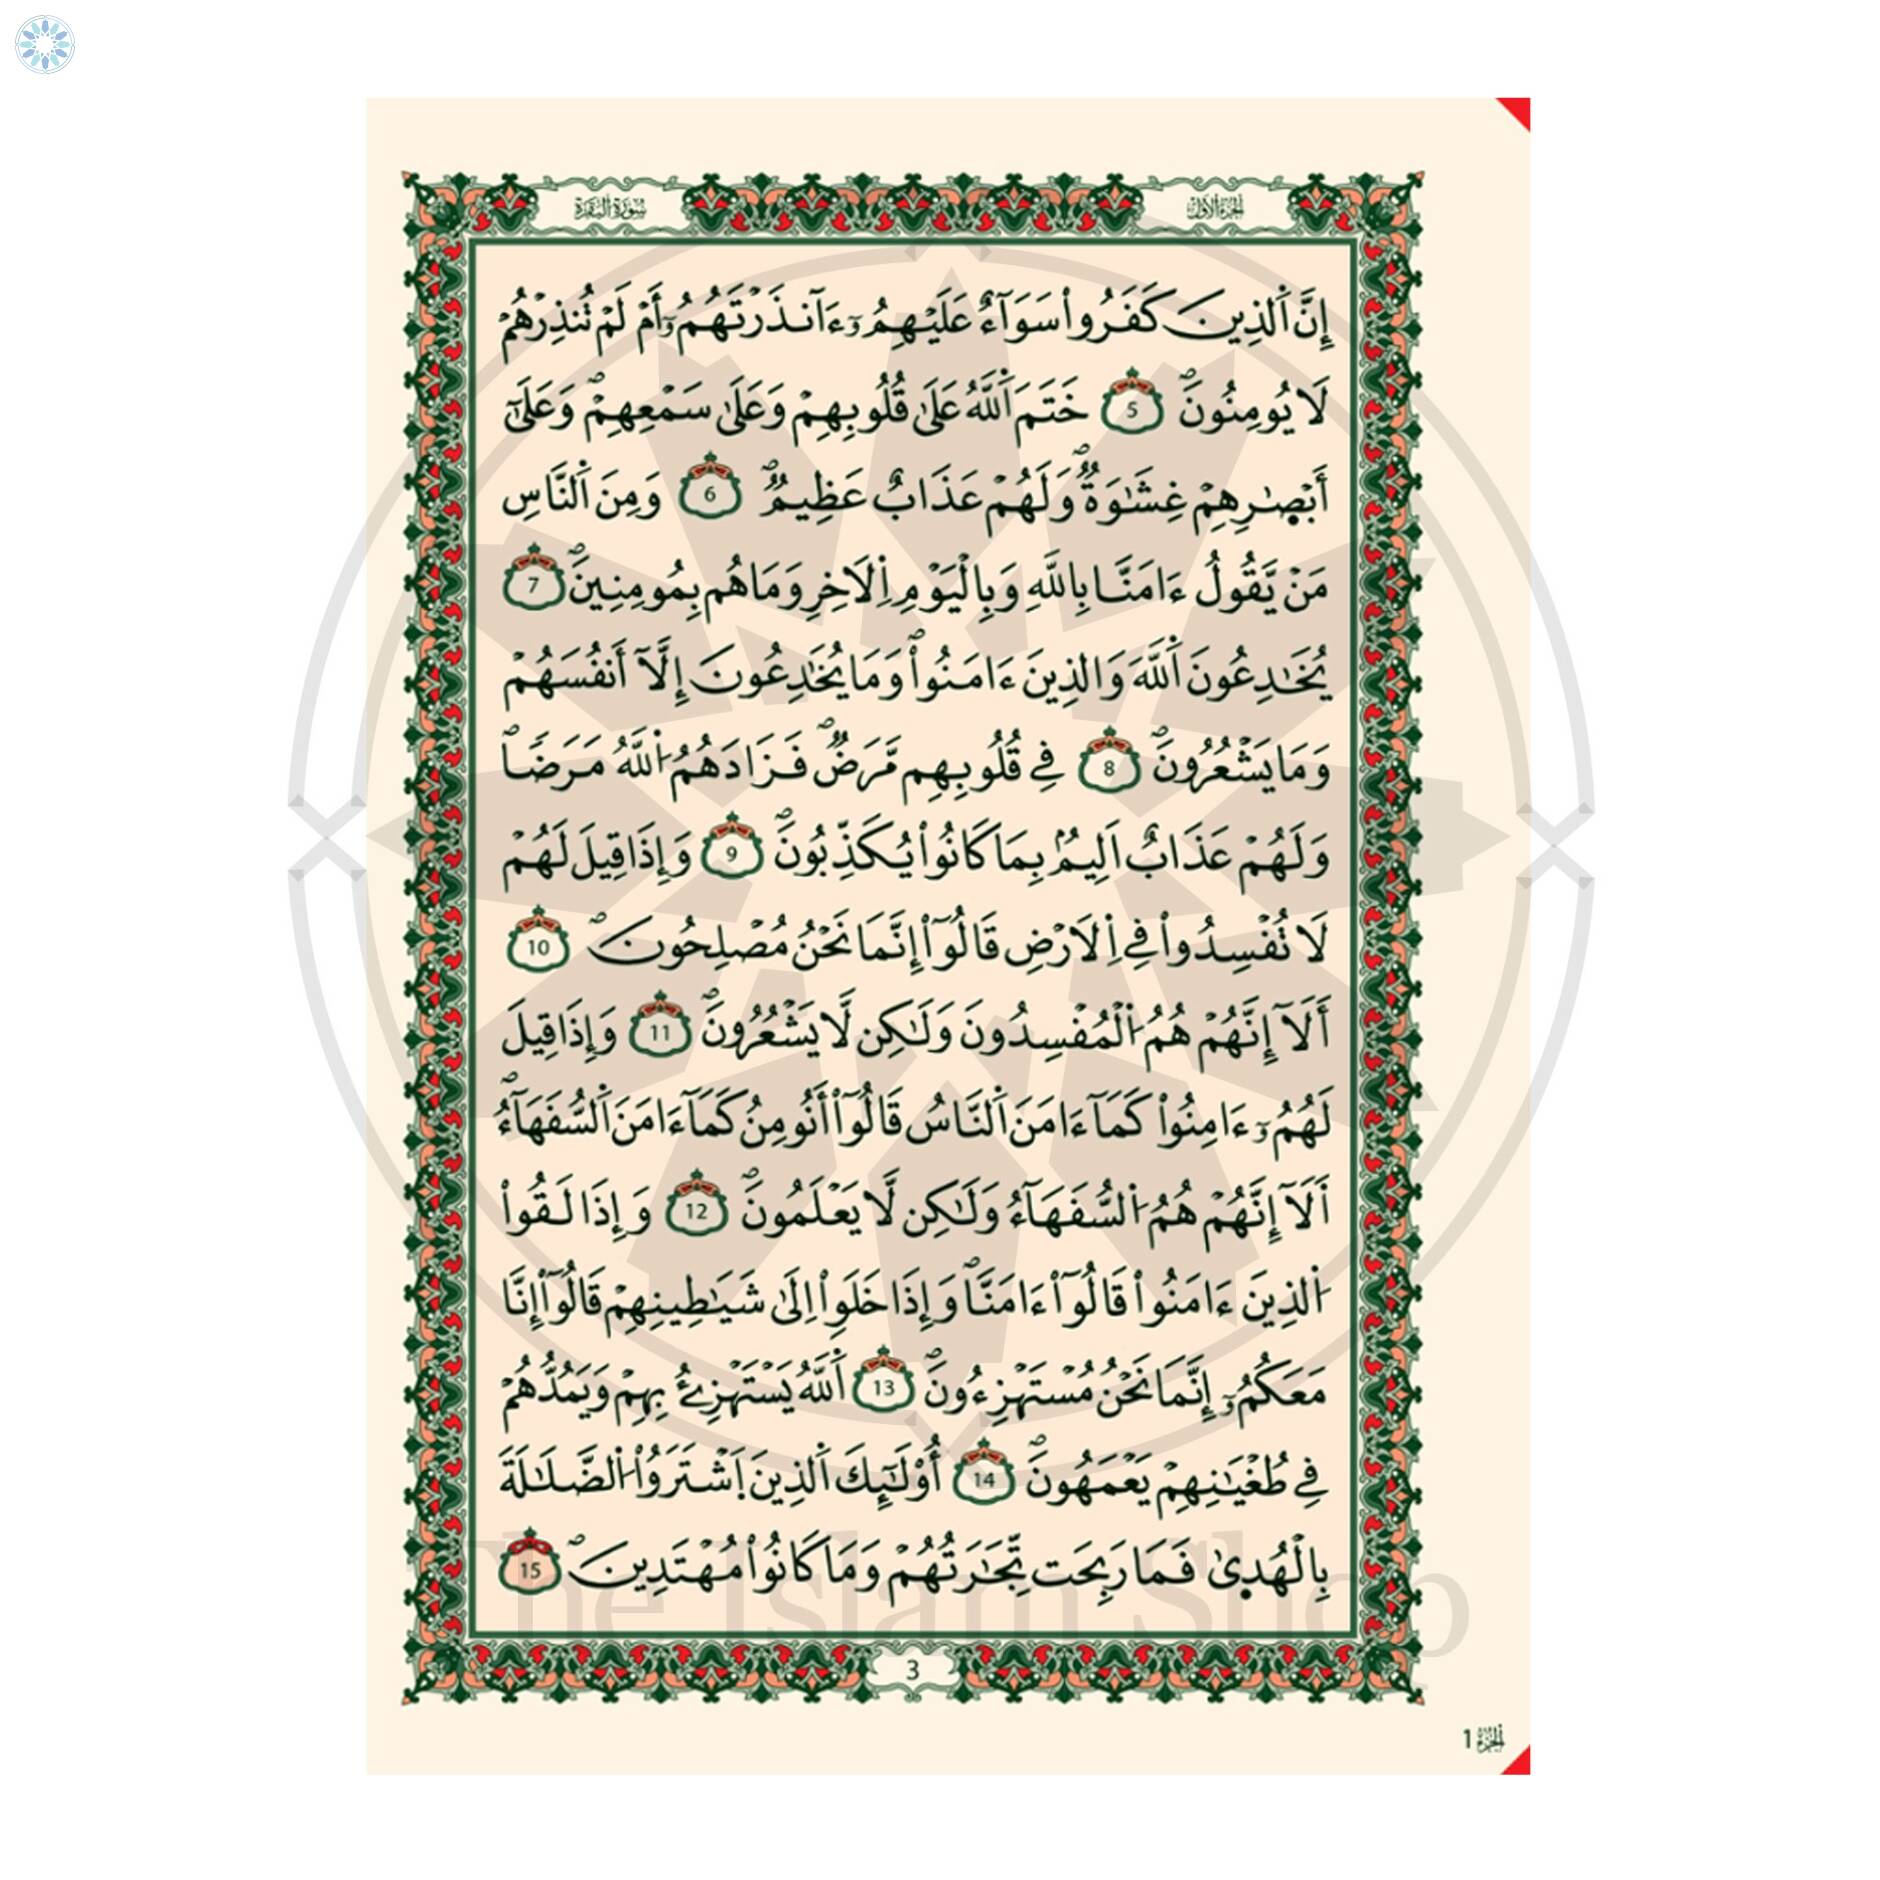 الجزء الأول
سورة البقرة
إِنَّ اَ۬لذِينَ كَفَرُواْ سَوَآءٌ عَلَيْهِمُۥٓ ءَآنذَرْتَهُمُۥٓ أَمْ لَمْ تُنذِرْهُمْ
لَا يُومِنُونَۖ 5 خَتَمَ اَ۬للَّهُ عَلَىٰ قُلُوبِهِمْ وَعَلَىٰ سَمْعِهِمْۖ وَعَلَىٰٓ
أَبْصٰ۪رِهِمْ غِشَٰوَةٞۖ وَلَهُمْ عَذَابٌ عَظِيمٞۖ 6 وَمِنَ اَ۬لنَّاسِ
مَنْ يَّقُولُ ءَامَنَّا بِاللَّهِ وَبِالْيَوْمِ اِ۬لَاخِرِ وَمَا هُم بِمُومِنِينَۖ 7
يُخَٰدِعُونَ اَ۬للَّهَ وَالذِينَ ءَامَنُواْۖ وَمَا يُخَٰدِعُونَ إِلَّآ أَنفُسَهُمْ
وَمَا يَشْعُرُونَۖ 8 فِے قُلُوبِهِم مَّرَضٞۖ فَزَادَهُمُ اُ۬للَّهُ مَرَضاٗۖ
وَلَهُمْ عَذَابٌ اَلِيمُۢ بِمَا كَانُواْ يُكَذِّبُونَۖ 9 وَإِذَا قِيلَ لَهُمْ
لَا تُفْسِدُواْ فِے اِ۬لَارْضِ قَالُوٓاْ إِنَّمَا نَحْنُ مُصْلِحُونَۖ 10
أَلَآ إِنَّهُمْ هُمُ اُ۬لْمُفْسِدُونَ وَلَٰكِن لَّا يَشْعُرُونَۖ 11 وَإِذَا قِيلَ
لَهُمُۥٓ ءَامِنُواْ كَمَآ ءَامَنَ اَ۬لنَّاسُ قَالُوٓاْ أَنُومِنُ كَمَآ ءَامَنَ اَ۬لسُّفَهَآءُۖ
أَلَآ إِنَّهُمْ هُمُ اُ۬لسُّفَهَآءُ وَلَٰكِن لَّا يَعْلَمُونَۖ 12 وَإِذَا لَقُواْ
اُ۬لذِينَ ءَامَنُواْ قَالُوٓاْ ءَامَنَّاۖ وَإِذَا خَلَوِاْ اِلَىٰ شَيَٰطِينِهِمْ قَالُوٓاْ إِنَّا
مَعَكُمُۥٓ إِنَّمَا نَحْنُ مُسْتَهْزِءُونَۖ 13 اَ۬للَّهُ يَسْتَهْزِئُ بِهِمْ وَيَمُدُّهُمْ
فِے طُغْيَٰنِهِمْ يَعْمَهُونَۖ 14 أُوْلَٰٓئِكَ اَ۬لذِينَ اَ۪شْتَرَوُاْ اُ۬لضَّلَٰلَةَ
بِالْهُد۪ىٰ فَمَا رَبِحَت تِّجَٰرَتُهُمْ وَمَا كَانُواْ مُهْتَدِينَۖ 15
3
الجزء 1
The Islam Shop